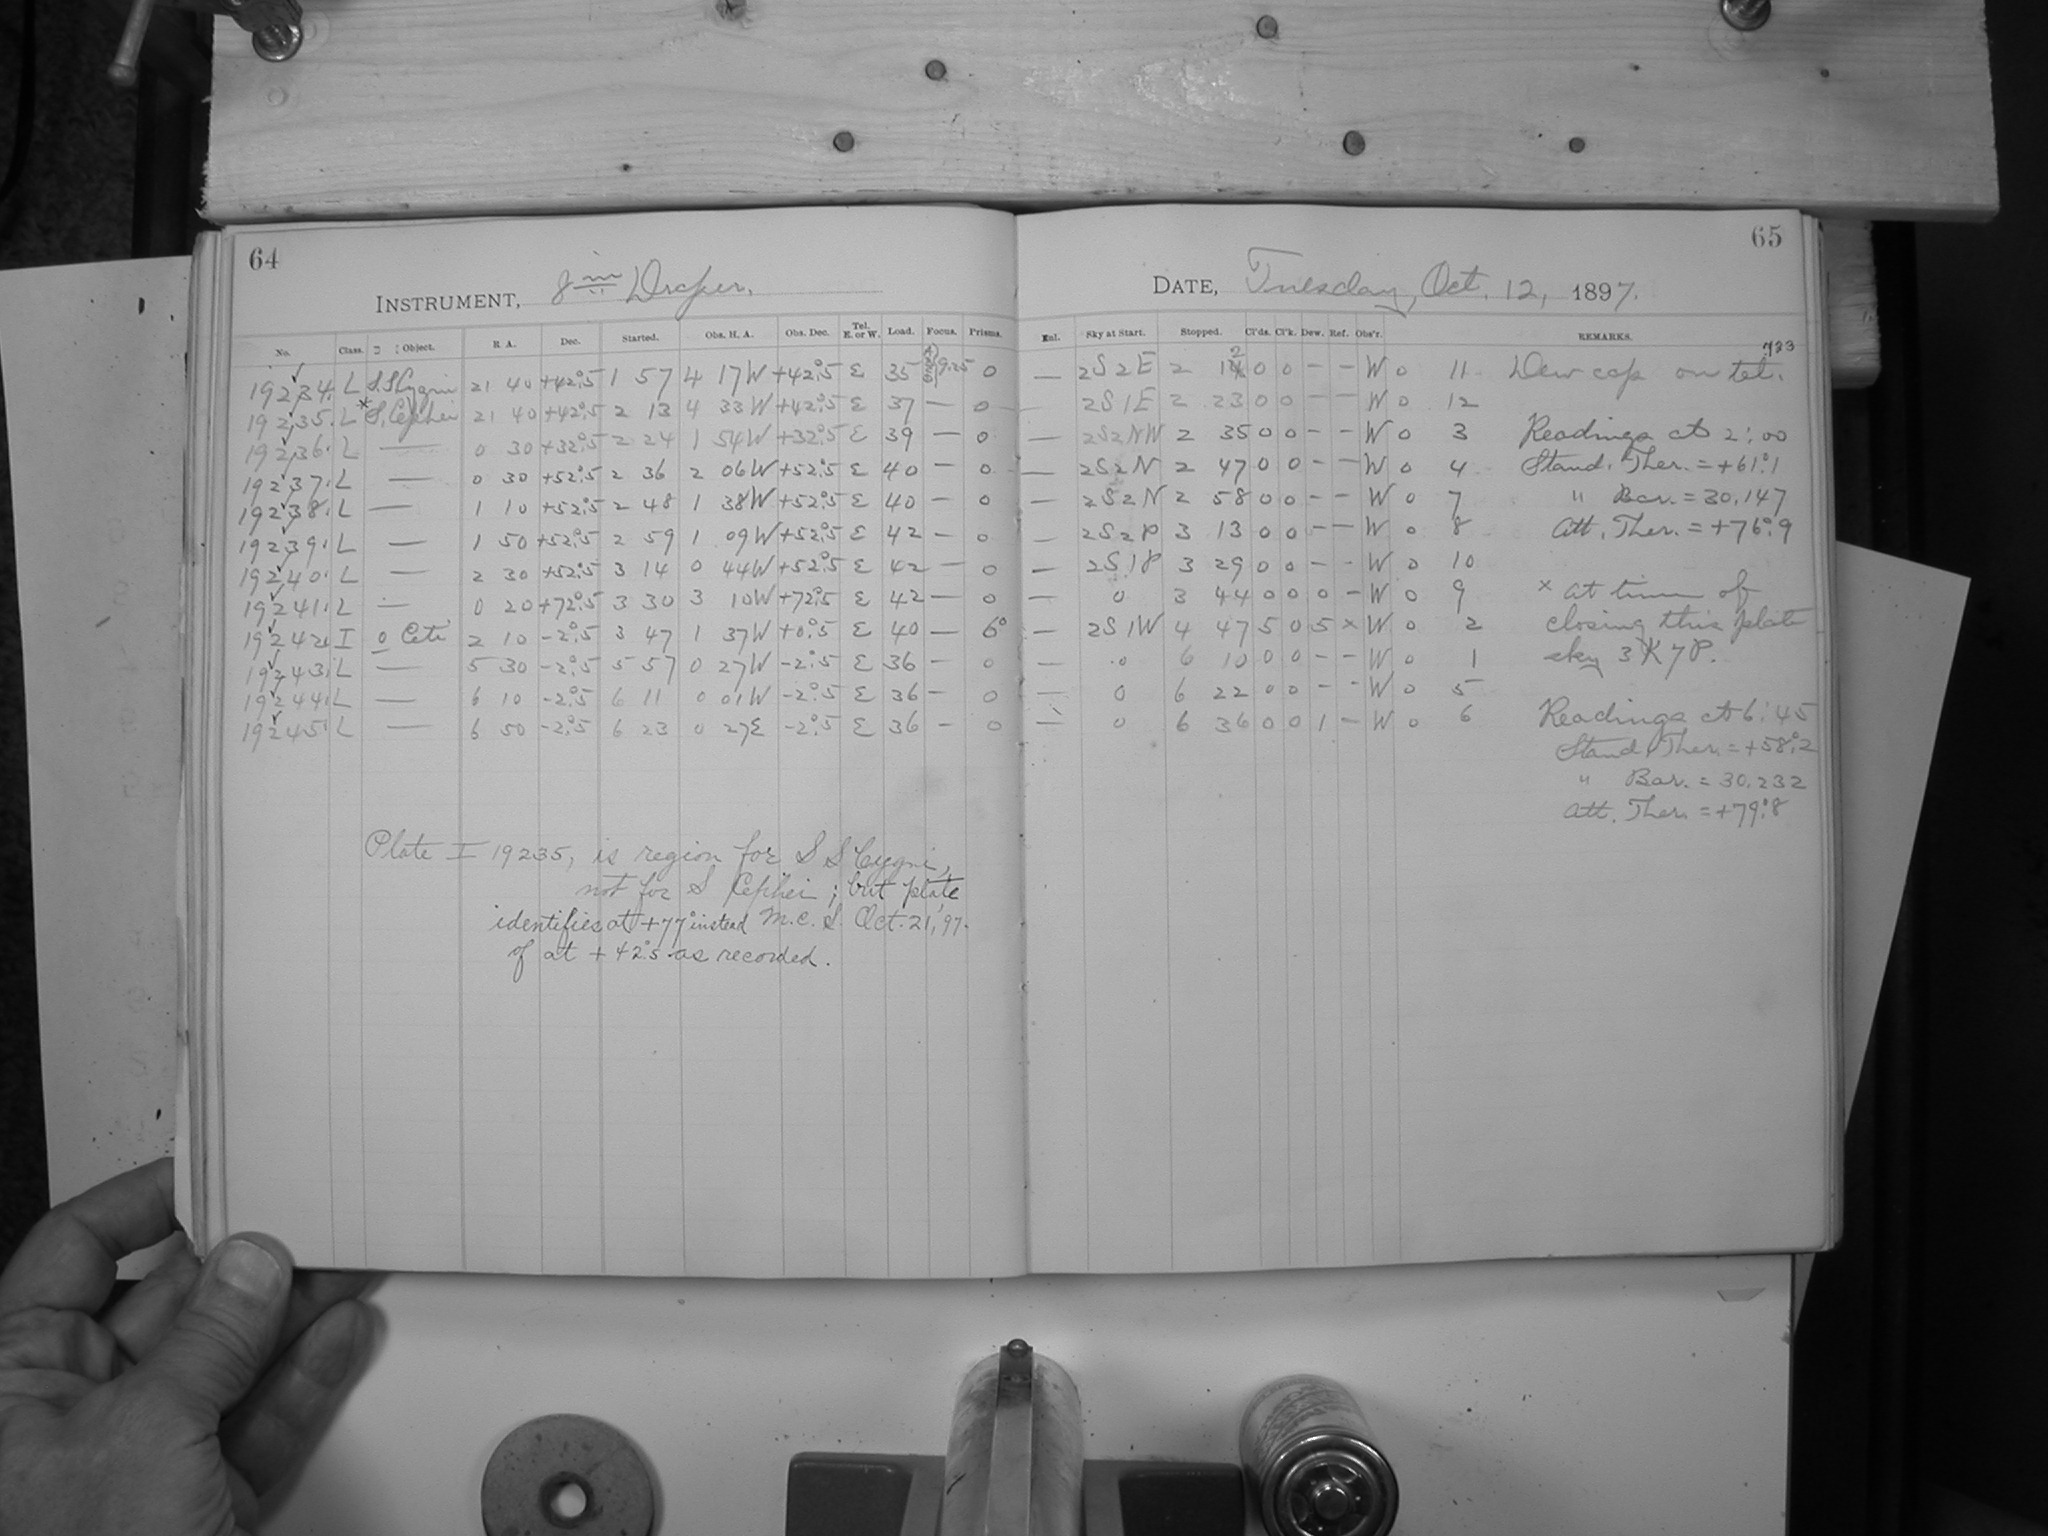 64
INSTRUMENT, 8 in Draper.
No. Class. Object. R A. Dec. Started. Obs. H. A. Obs. Dec. Tel. E. or W. Load. Focus. Prisms.
19234. L S.S Cygni 21 40 +42°.5 1 57 4 17W +42°.5 E 35 9.25 0
19235. L *S. Cephei 21 40 +42°.5 2 13 4 33W +42°.5 E 37 — 0
19236. L — 0 30 +32°.5 2 24 1 54W +32°.5 E 39 — 0
19237. L — 0 30 +52°.5 2 36 2 06W +52°.5 E 40 — 0
19238. L — 1 10 +52°.5 2 48 1 38W +52°.5 E 40 — 0
19239. L — 1 50 +52°.5 2 59 1 09W +52°.5 E 42 — 0
19240. L — 2 30 +52°.5 3 14 0 44W +52°.5 E 42 — 0
19241. L — 0 20 +72°.5 3 30 3 10W +72°.5 E 42 — 0
19242. I o Ceti 2 10 -2°.5 3 47 1 37W +0°.5 E 40 — 6°
19243. L — 5 30 -2°.5 5 57 0 27W -2°.5 E 36 — 0
19244. L — 6 10 -2°.5 6 11 0 01W -2°.5 E 36 — 0
19245. L — 6 50 -2°.5 6 23 0 27E -2°.5 E 36 - 0
Plate I 19235, is region for S S Cygni,
not for S Cephei; but plate
identifies at +77° instead M.C.S. Oct. 21, '97.
of at +42°.5 as recorded.
65
DATE, Tuesday, Oct. 12, 1897.
Enl. Sky at Start. Stopped. Cl'ds. Cl'k. Dew. Ref. Obs'r. REMARKS.
723
— 2S2E 2 12 0 0 - - W 0 11 Dew cap on tel.
— 2S1E 2 23 0 0 - - W 0 12
— 2S2NW 2 35 0 0 - - W 0 3 Readings at 2:00
— 2S2N 2 47 0 0 - - W 0 4 Stand. Ther. = +61°.1
— 2S2N 2 58 0 0 - - W 0 7 " Bar. = 30.147
— 2S2P 3 13 0 0 - - W 0 8 Att. Ther. = +76°.9
— 2S1P 3 29 0 0 - - W 0 10
— 0 3 44 0 0 0 - W 0 9 × at time of
— 2S1W 4 47 5 0 5 × W 0 2 closing this plate
— 0 6 10 0 0 - - W 0 1 sky 3K7P.
— 0 6 22 0 0 - - W 0 5
— 0 6 36 0 0 1 - W 0 6 Readings at 6:45
Stand. Ther. = +58°.2
" Bar. = 30.232
Att. Ther. = +79°.8